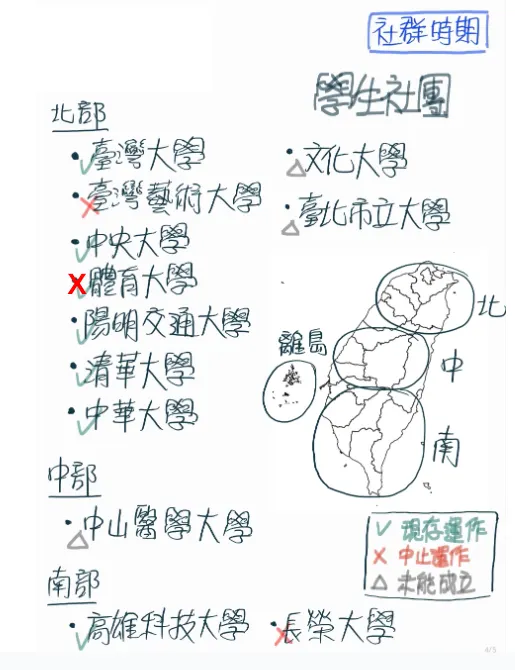 社群時期
學生社團
北部
• 臺灣大學
• 臺灣藝術大學
• 中央大學
• 體育大學
• 陽明交通大學
• 清華大學
• 中華大學
• 文化大學
• 臺北市立大學
北
離島
中
南
中部
• 中山醫學大學
南部
• 高雄科技大學
• 長榮大學
✓ 現存運作
✗ 中止運作
△ 未能成立
4/5